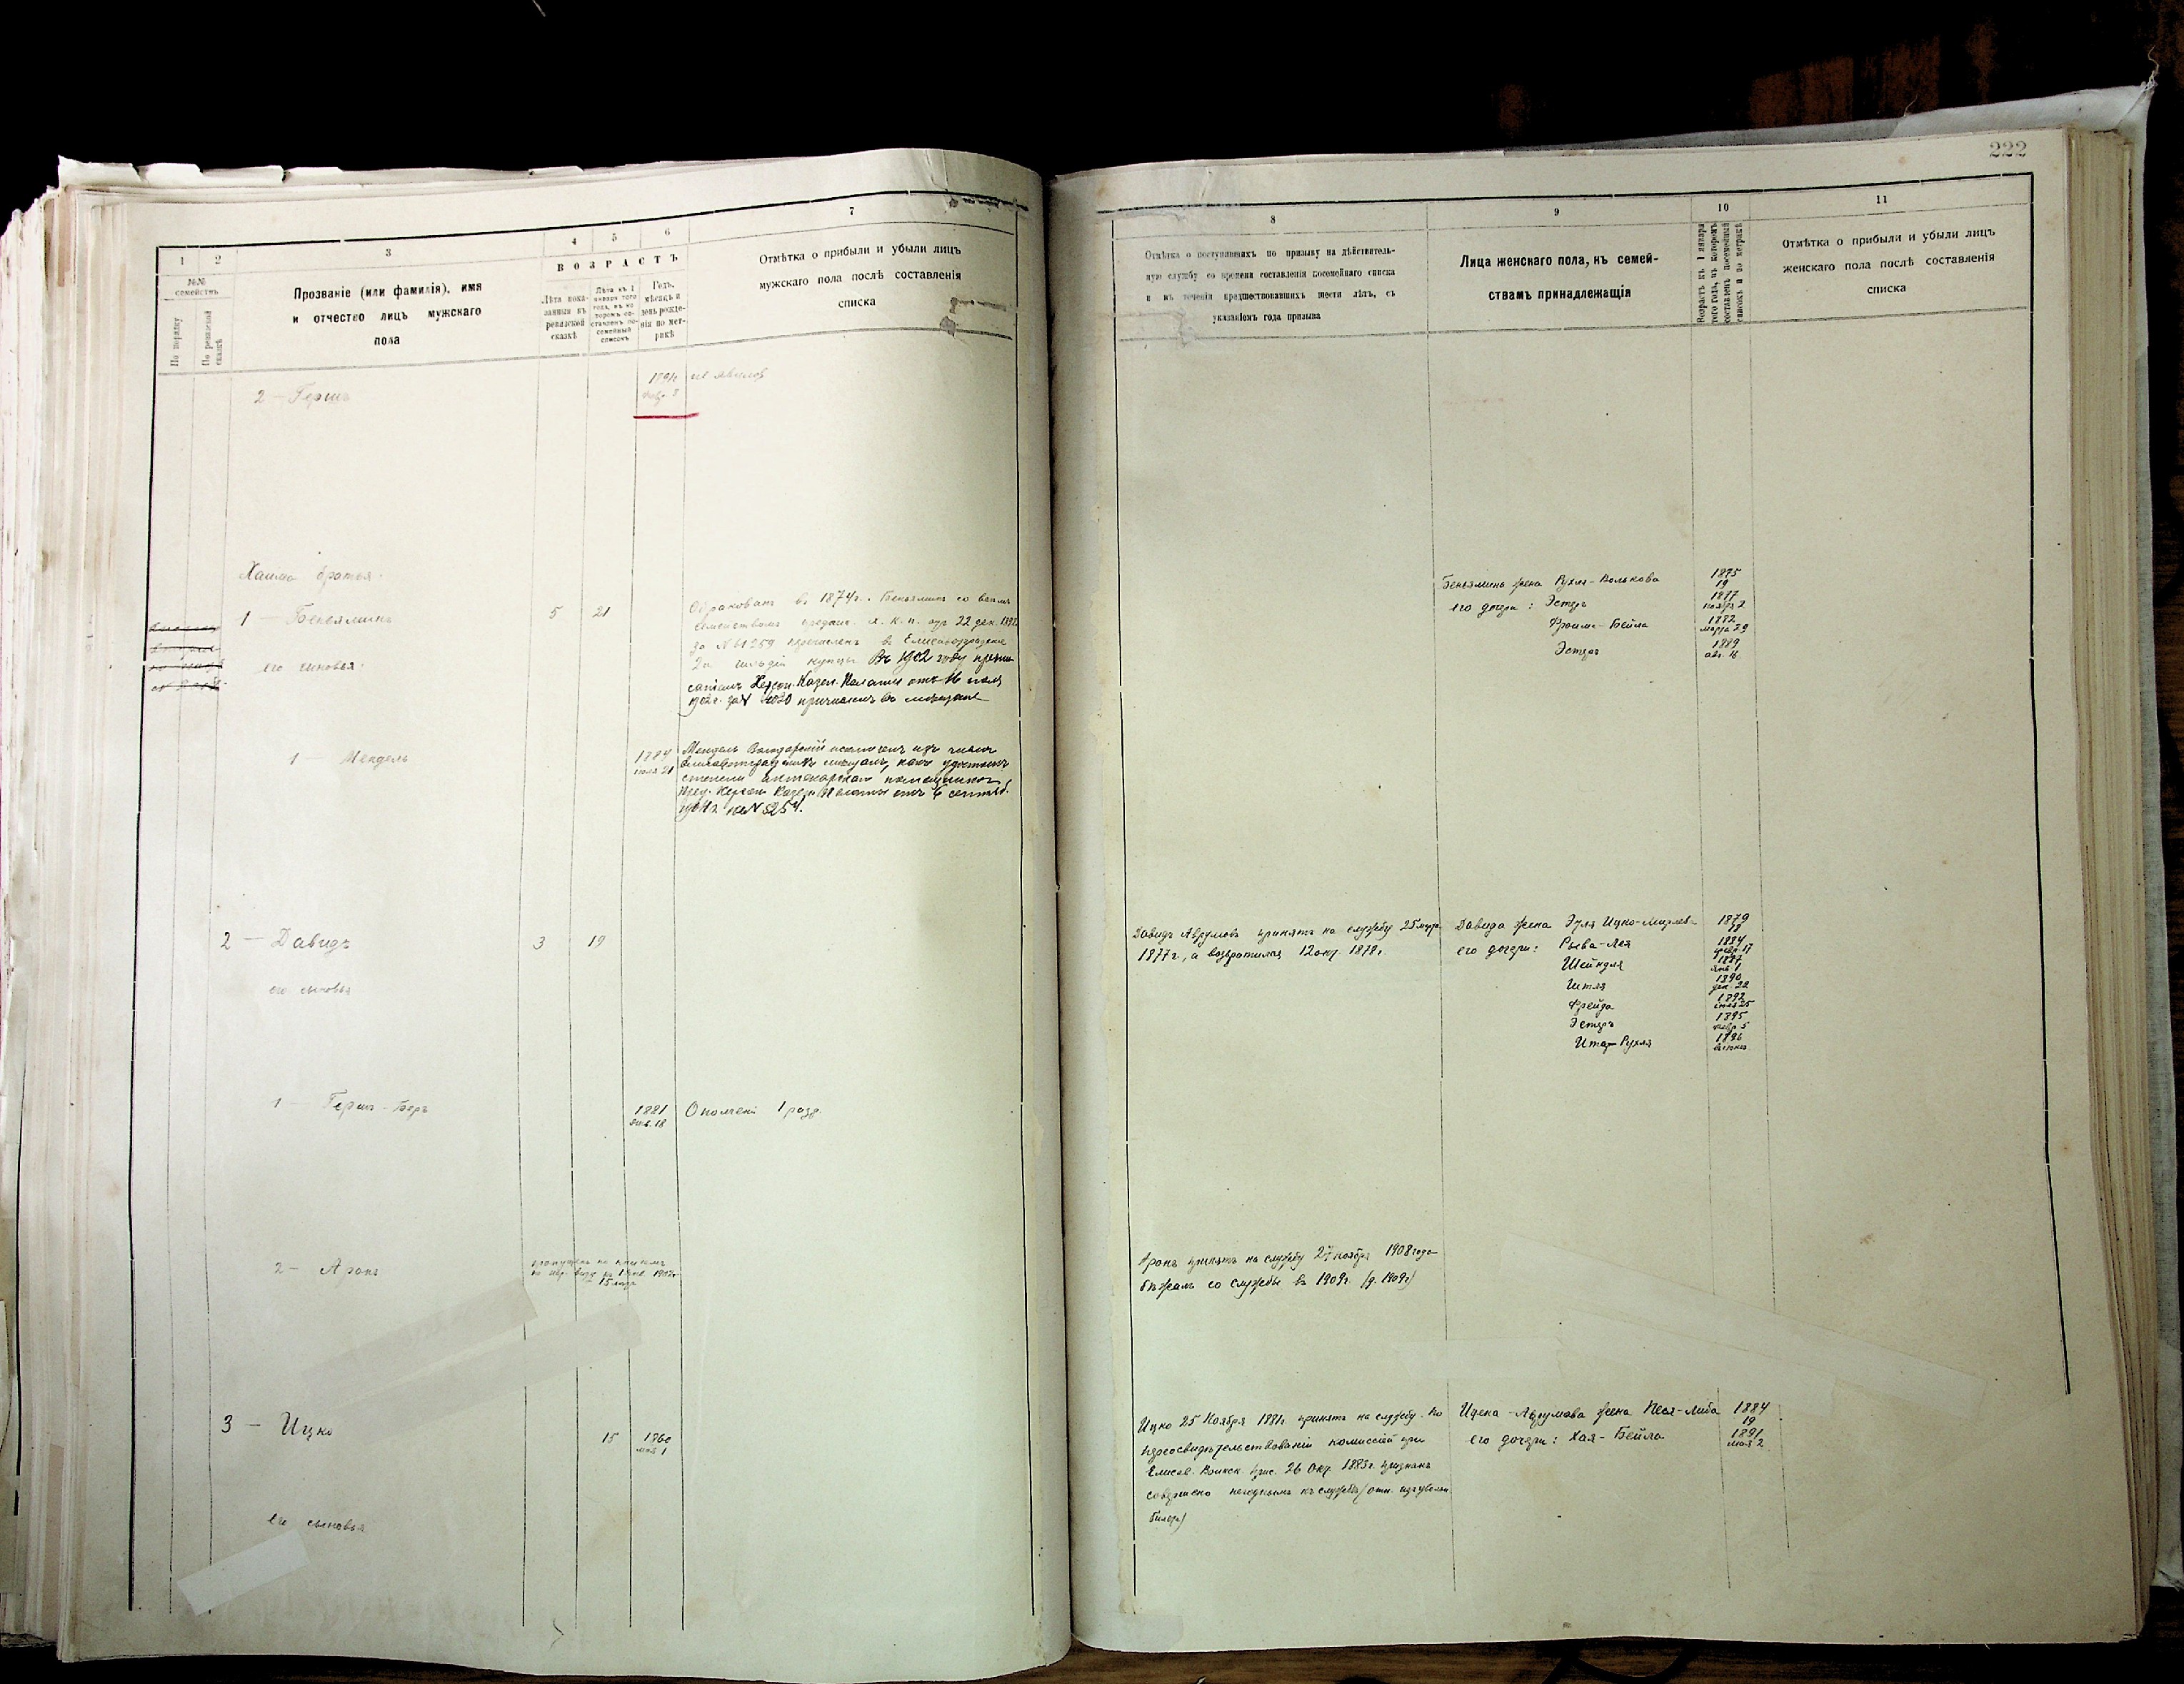 222
1 2 3 4 5 6 7
№№ семействъ
По порядку
По ревизской сказкѣ
Прозваніе (или фамилія), имя
и отчество лицъ мужскаго
пола
ВОЗРАСТЪ
Лѣта пока-
занныя въ
ревизской
сказкѣ
Лѣта къ 1
января того
года, въ ко-
торомъ со-
ставленъ по-
семейный
списокъ
Годъ,
мѣсяцъ и
день рожде-
нія по мет-
рикѣ
Отмѣтка о прибыли и убыли лицъ
мужскаго пола послѣ составленія
списка
2 — Гершъ
Хаима братья:
1 — Беньяминъ 5 21
Обракованъ въ 1874г. Беньяминъ со всѣмъ
семействомъ предпис. х. к. п. отъ 22 дек.
за № 61259 перечисленъ въ Елисаветградскіе
2й гильдіи купцы Въ 1902 году предпи-
саніемъ Херсон. Казен. Палаты отъ 16
1902 г. за № причисленъ въ мѣщане
его сыновья:
1 — Мендель 1884 21
Мендель исключенъ изъ числа
Елисаветградскихъ мѣщанъ, какъ удостоенъ
степени аптекарскаго помощника,
пред. Херсон. Казен. Палаты отъ 6 сентяб.
№ 5254.
2 — Давидъ 3 19
его сыновья
1 — Гершъ-Беръ 1881 янв. 18 Ополченіе 1 разр.
2 — Аронъ
15 лѣтъ
3 — Ицко 15 1860 мая 1
его сыновья
8 9 10 11
Отмѣтка о поступившихъ по призыву на дѣйствитель-
ную службу со времени составленія посемейнаго списка
и въ теченіи предшествовавшихъ шести лѣтъ, съ
указаніемъ года призыва
Лица женскаго пола, къ семей-
ствамъ принадлежащія
Возрастъ къ 1 января
того года, въ которомъ
составленъ посемейный
списокъ и по метрикѣ
Отмѣтка о прибыли и убыли лицъ
женскаго пола послѣ составленія
списка
Беньямина жена Рухля-Волькова 1875 19
его дочери: Эстеръ 1877 ноября 2
Фрима-Бейла 1882 марта 29
Эстеръ 1889 авг. 16
Давидъ Аврумовъ принятъ на службу 25 мар.
1877г., а возвратился 12 окт. 1878г.
Давида жена Эля Ицко-Мирлева 1879
его дочери: Рыва-Лея 1884 фев. 17
Шейндля 1887 янв. 1
Итля 1890 дек. 22
Фрейда 1892 25
Эстеръ 1895 5
Ита-Рухля 1896
Аронъ принятъ на службу 27 ноября 1908 года
бѣжалъ со службы въ 1909г. (д. 1909г)
Ицко 25 Ноября 1881г. принятъ на службу. По
переосвидѣтельствованіи комиссіей при
Елисав. Воинск. прис. 26 Окт. 1883г. признанъ
совершено негоднымъ къ службѣ (отм. изъ увольн.
билета)
Ицека-Аврумова жена Песя-Либа 1884 19
его дочери: Хая-Бейла 1891 мая 2